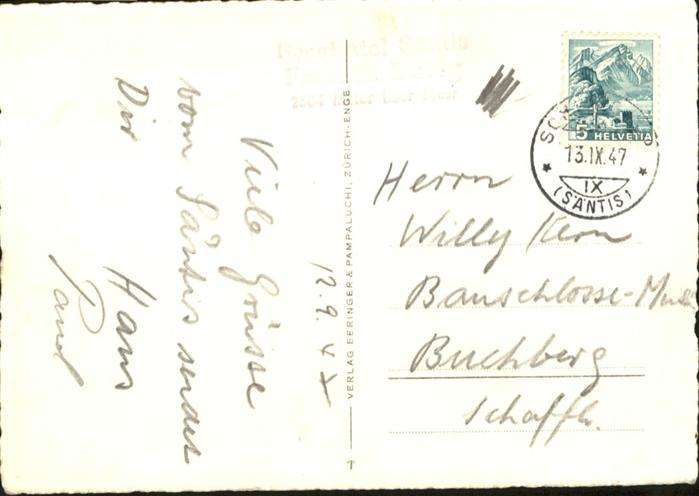 12.9.47
Viele Grüsse
vom Säntis sendet
Dir
Hans
Paul
VERLAG BERINGER & PAMPALUCHI, ZÜRICH-ENGE
5 HELVETIA
13.IX.47
IX
(SÄNTIS)
Herrn
Willy Kern
Buchberg
Schaffh.